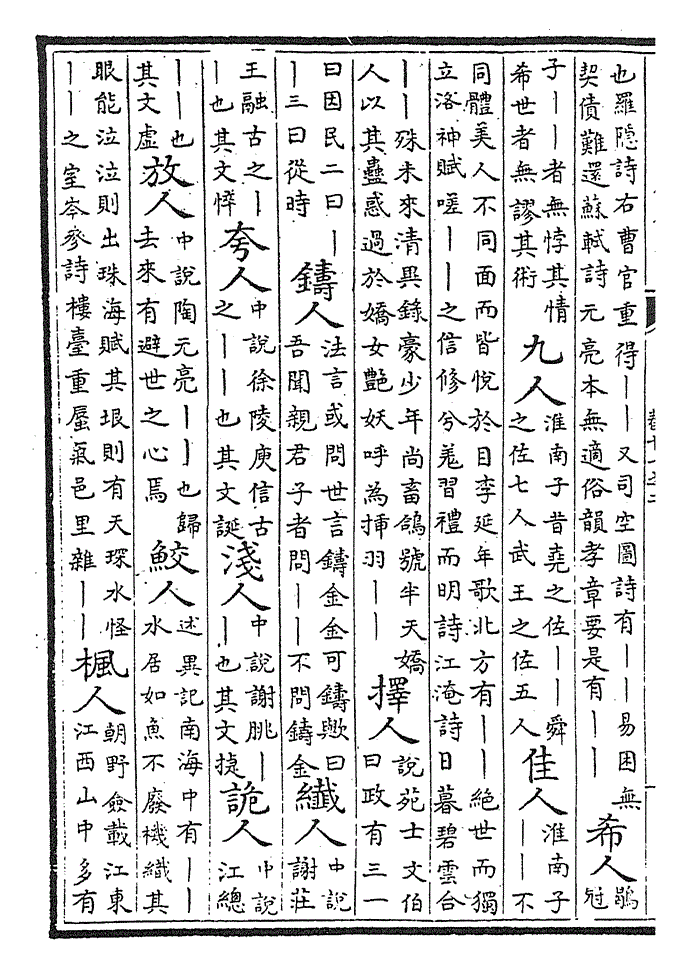 也羅隱詩右曹官重得——又司空圖詩有——易困無
契債難還蘇軾詩元亮本無適俗韻孝章要是有——
希人
鶡
冠
子——者無悖其情
希世者無謬其術
九人
淮南子昔堯之佐——舜
之佐七人武王之佐五人
佳人
淮南子
——不
同體美人不同面而皆悅於目李延年歌北方有——絕世而獨
立洛神賦嗟——之信修兮羗習禮而明詩江淹詩日暮碧雲合
——殊未來清異錄豪少年尚畜鴿號半天嬌
人以其蠱惑過於嬌女艷妖呼為揷羽——
擇人
說苑士文伯
曰政有三一
曰因民二曰—
—三曰從時
鑄人
法言或問世言鑄金金可鑄歟曰
吾聞覿君子者問——不問鑄金
纎人
中說
謝莊
王融古之—
—也其文悴
夸人
中說徐陵庾信古
之——也其文誕
淺人
中說謝朓—
—也其文捷
詭人
中說
江總
——也
其文虛
放人
中說陶元亮——也歸
去來有避世之心焉
鮫人
述異記南海中有——
水居如魚不廢機織其
眼能泣泣則出珠海賦其垠則有天琛水怪
——之室岑參詩樓臺重蜃氣邑里雜——
楓人
朝野僉載江東
江西山中多有